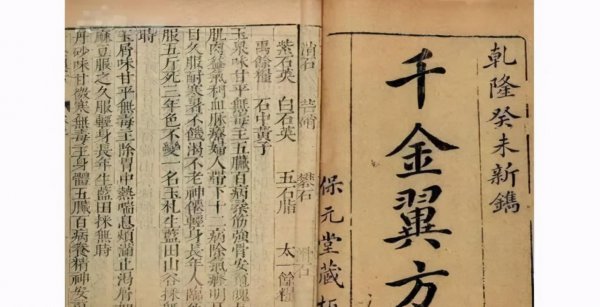 乾隆癸未新鐫
千金翼方
保元堂藏板
消石 芒硝 礬石
紫石英 白石英 五石脂 太一餘糧
禹餘糧 石中黃子
玉泉味甘平無毒主五臟百病柔筋強骨安魂魄
肌肉益氣利血脉療婦人帶下十二病除氣癃明
目久服耐寒暑不饑渴不老神僊輕身長年人臨
服五斤死三年色不變一名玉札生藍田山谷採
時
玉屑味甘平無毒主除胃中熱喘息煩滿止渴屑
麻豆服之久服輕身長年生藍田採無時
丹砂味甘微寒無毒主身體五臟百病養精神安